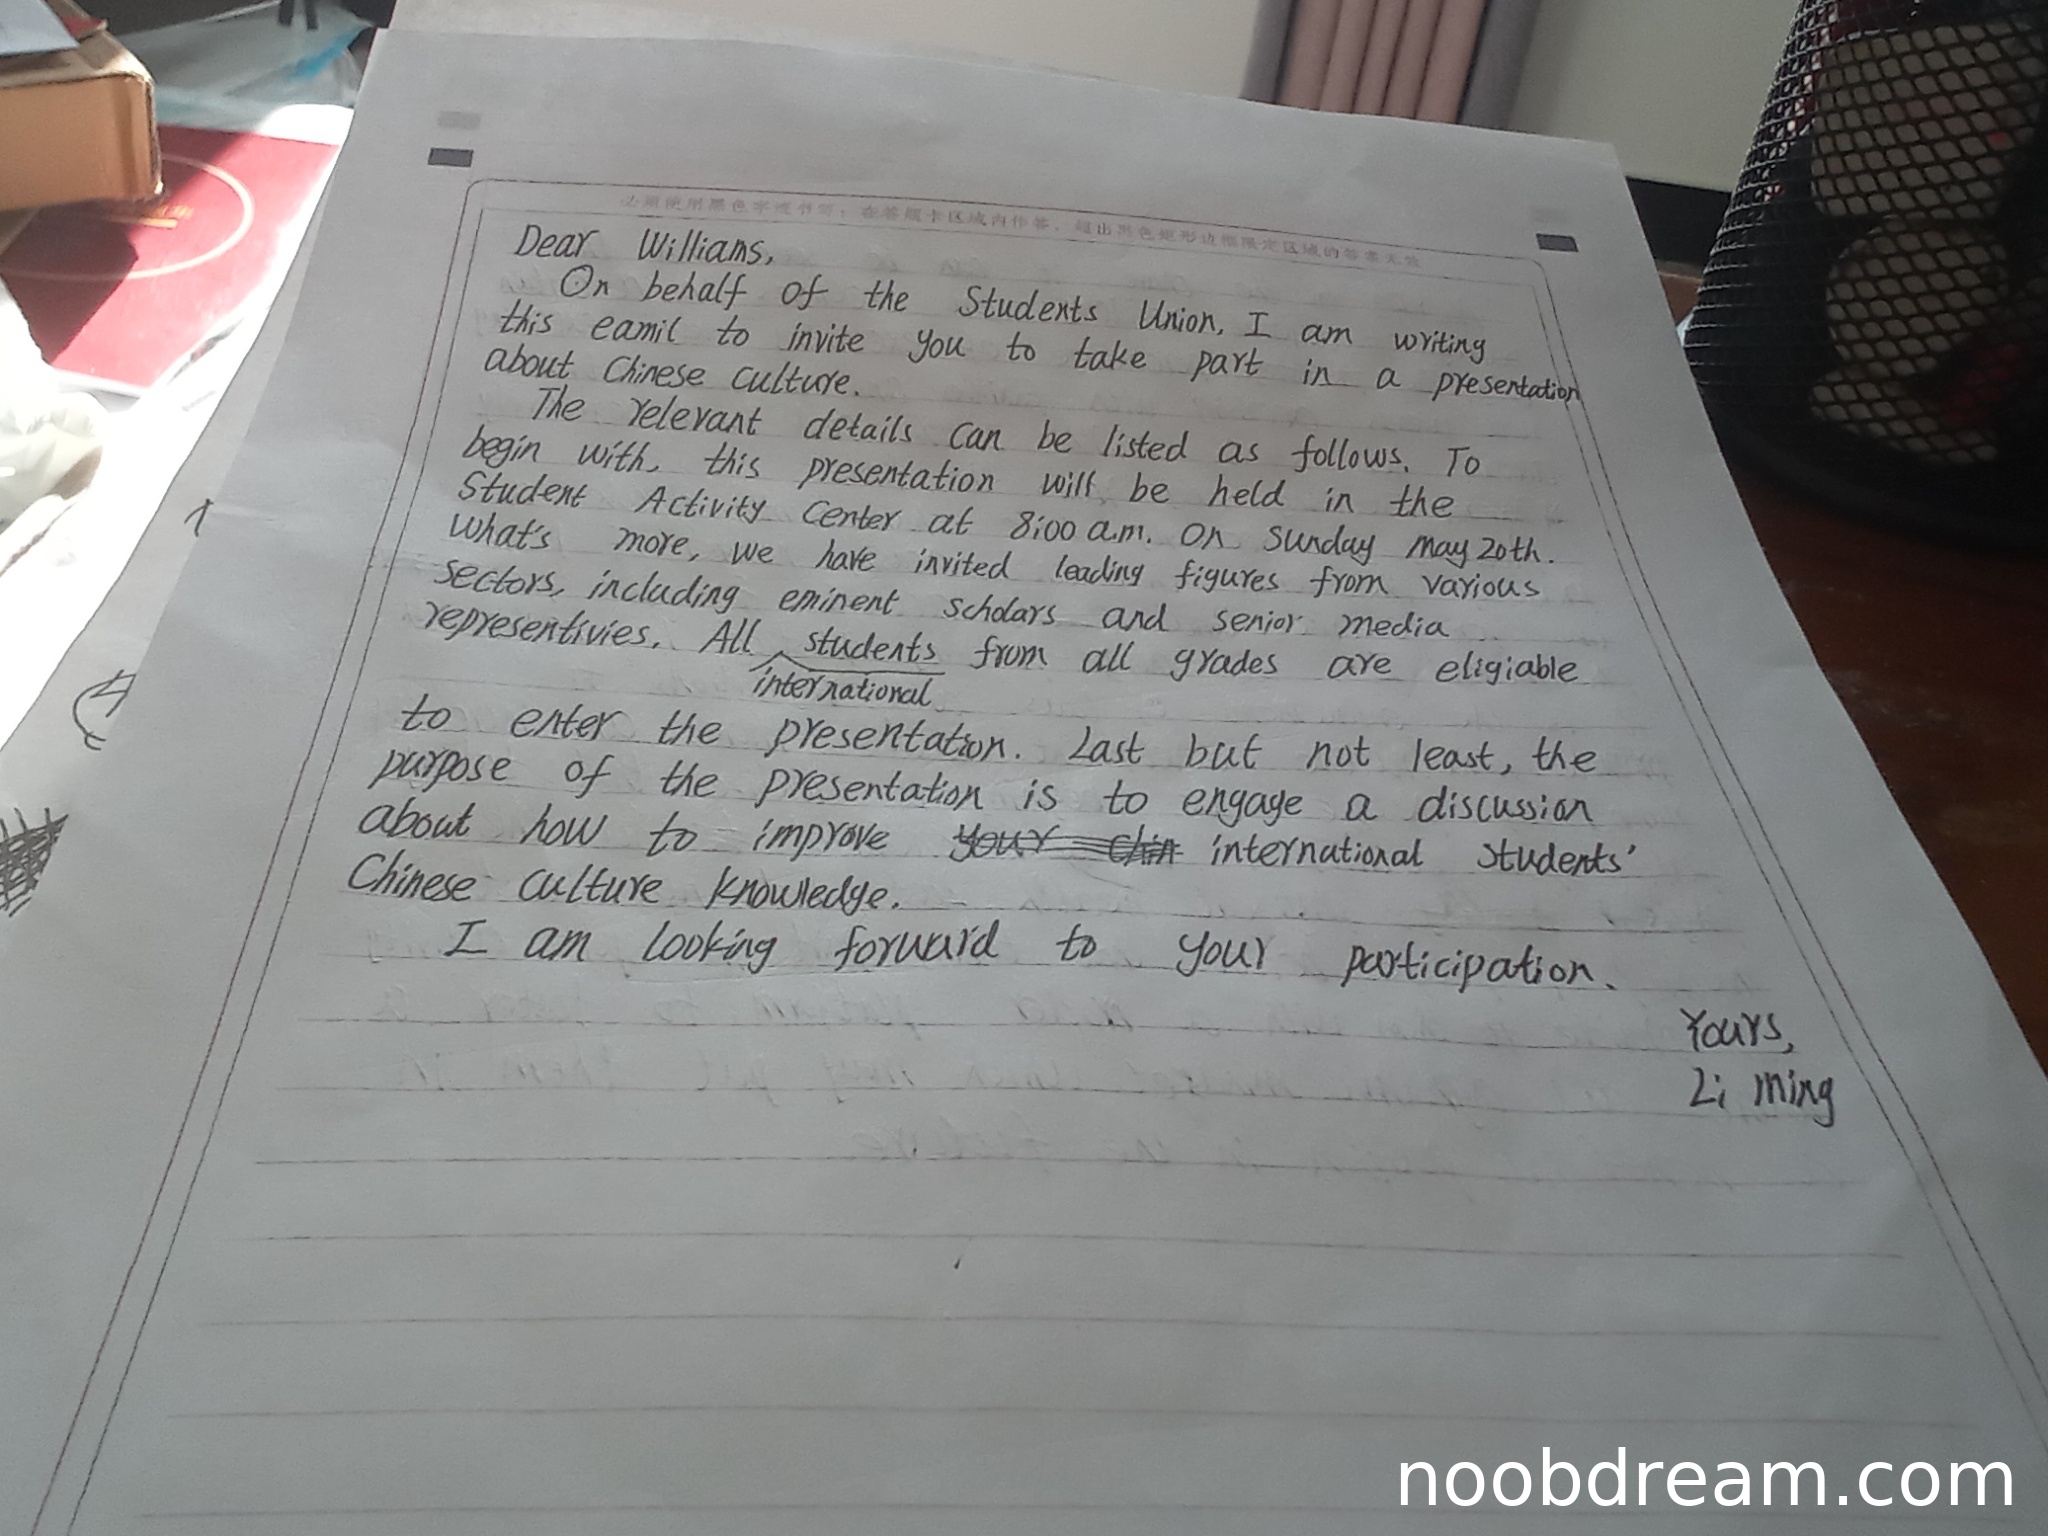 必须使用黑色字迹书写；在答题卡区域内作答，超出黑色矩形边框限定区域的答案无效
Dear Williams,
On behalf of the Students Union, I am writing
this eamil to invite you to take part in a presentation
about Chinese culture.
The relevant details can be listed as follows. To
begin with, this presentation will be held in the
Student Activity Center at 8:00 a.m. On Sunday May 20th.
What's more, we have invited leading figures from various
sectors, including eminent scholars and senior media
representivies. All students from all grades are eligiable
international
to enter the presentation. Last but not least, the
purpose of the presentation is to engage a discussion
about how to improve international students'
Chinese culture knowledge.
I am looking forward to your participation.
Yours,
Li Ming
noobdream.com